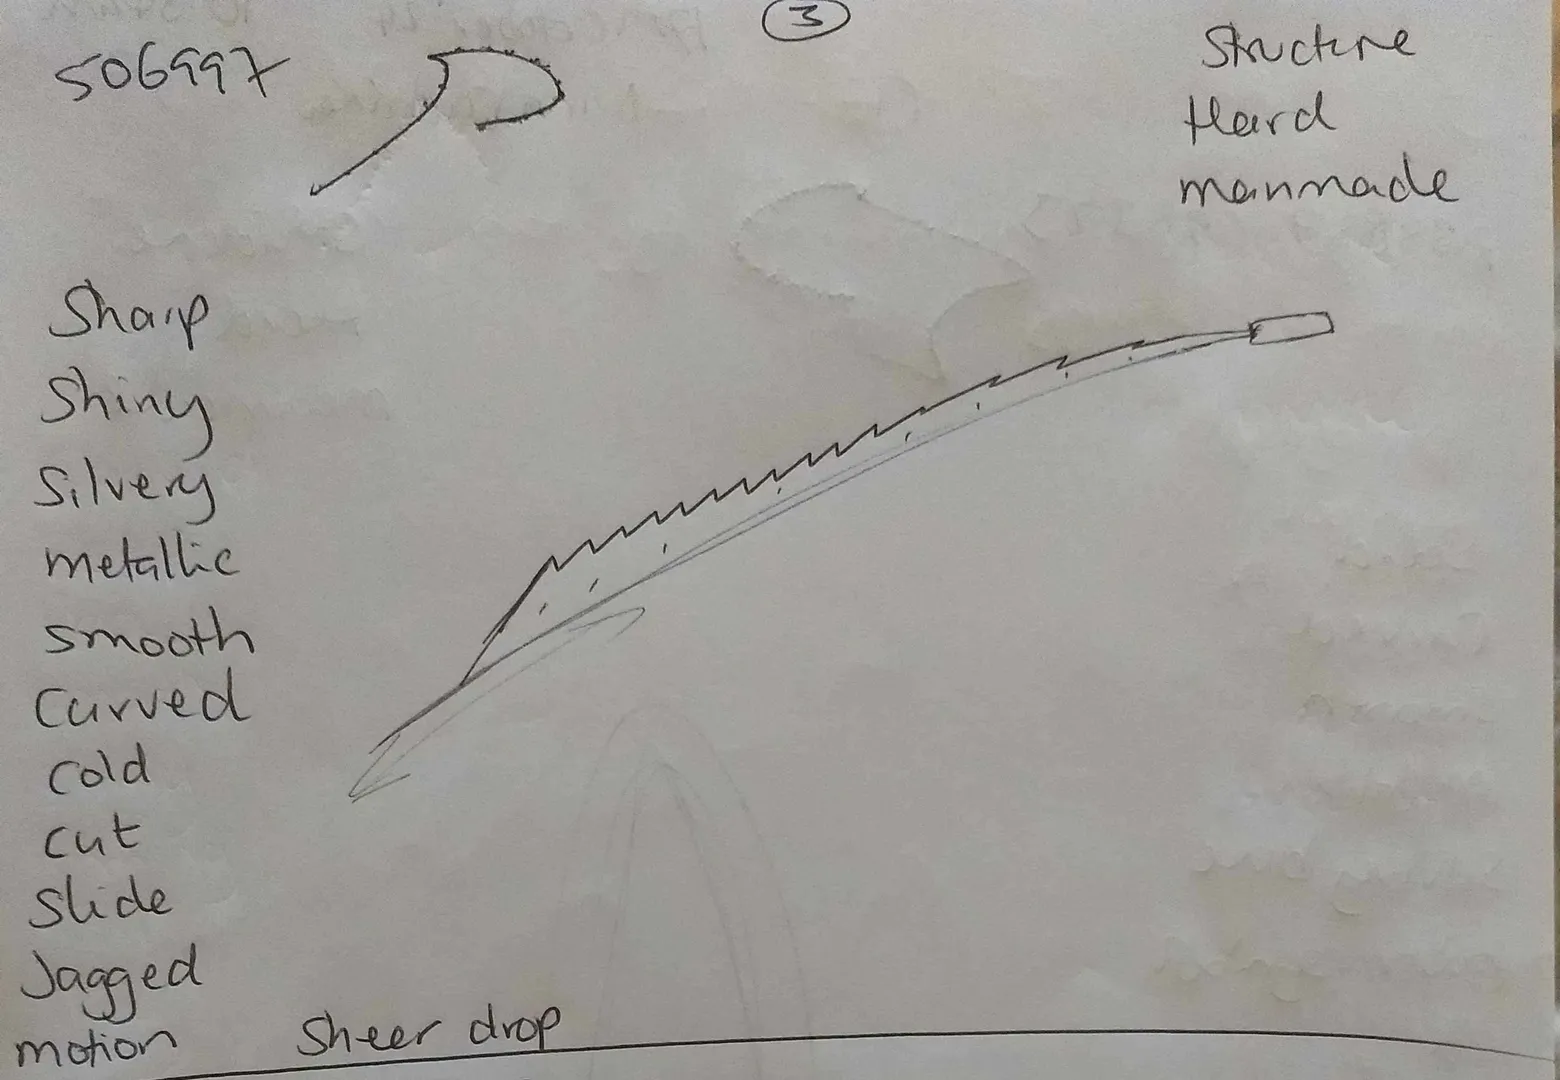 3
506997
Structure
Hard
manmade
Sharp
Shiny
Silvery
metallic
smooth
Curved
cold
cut
Slide
Jagged
motion
Sheer drop